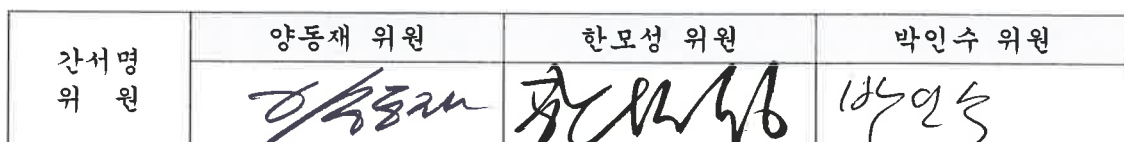 간서명
위 원
양동재 위원 한모성 위원 박인수 위원
양동재 박인수